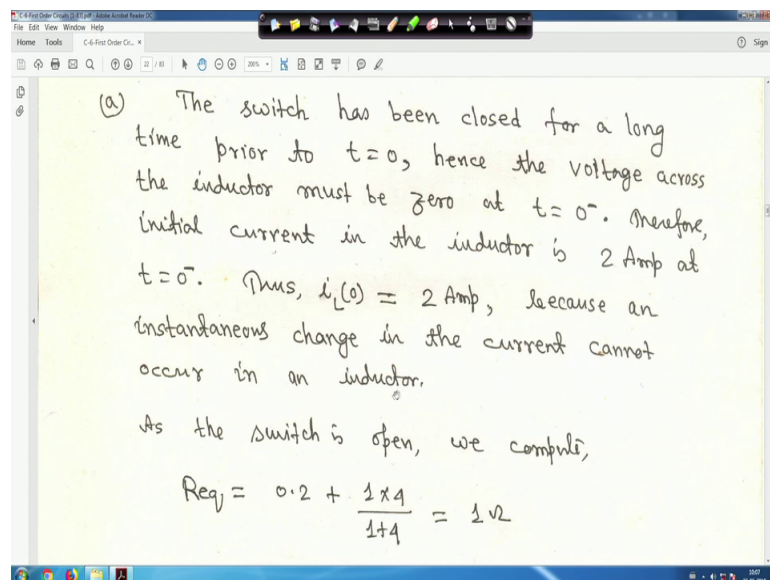 C-6-First Order Circuits [1-83].pdf - Adobe Acrobat Reader DC
File Edit View Window Help
Home Tools C-6-First Order Cir... × Sign
22 / 83 200%
(a) The switch has been closed for a long
time prior to t=0, hence the voltage across
the inductor must be zero at t=0⁻. Therefore,
initial current in the inductor is 2 Amp at
t=0⁻. Thus, i_L(0) = 2 Amp, because an
instantaneous change in the current cannot
occur in an inductor.
As the switch is open, we compute,
Req = 0.2 + 1×4 / 1+4 = 1Ω
10:07